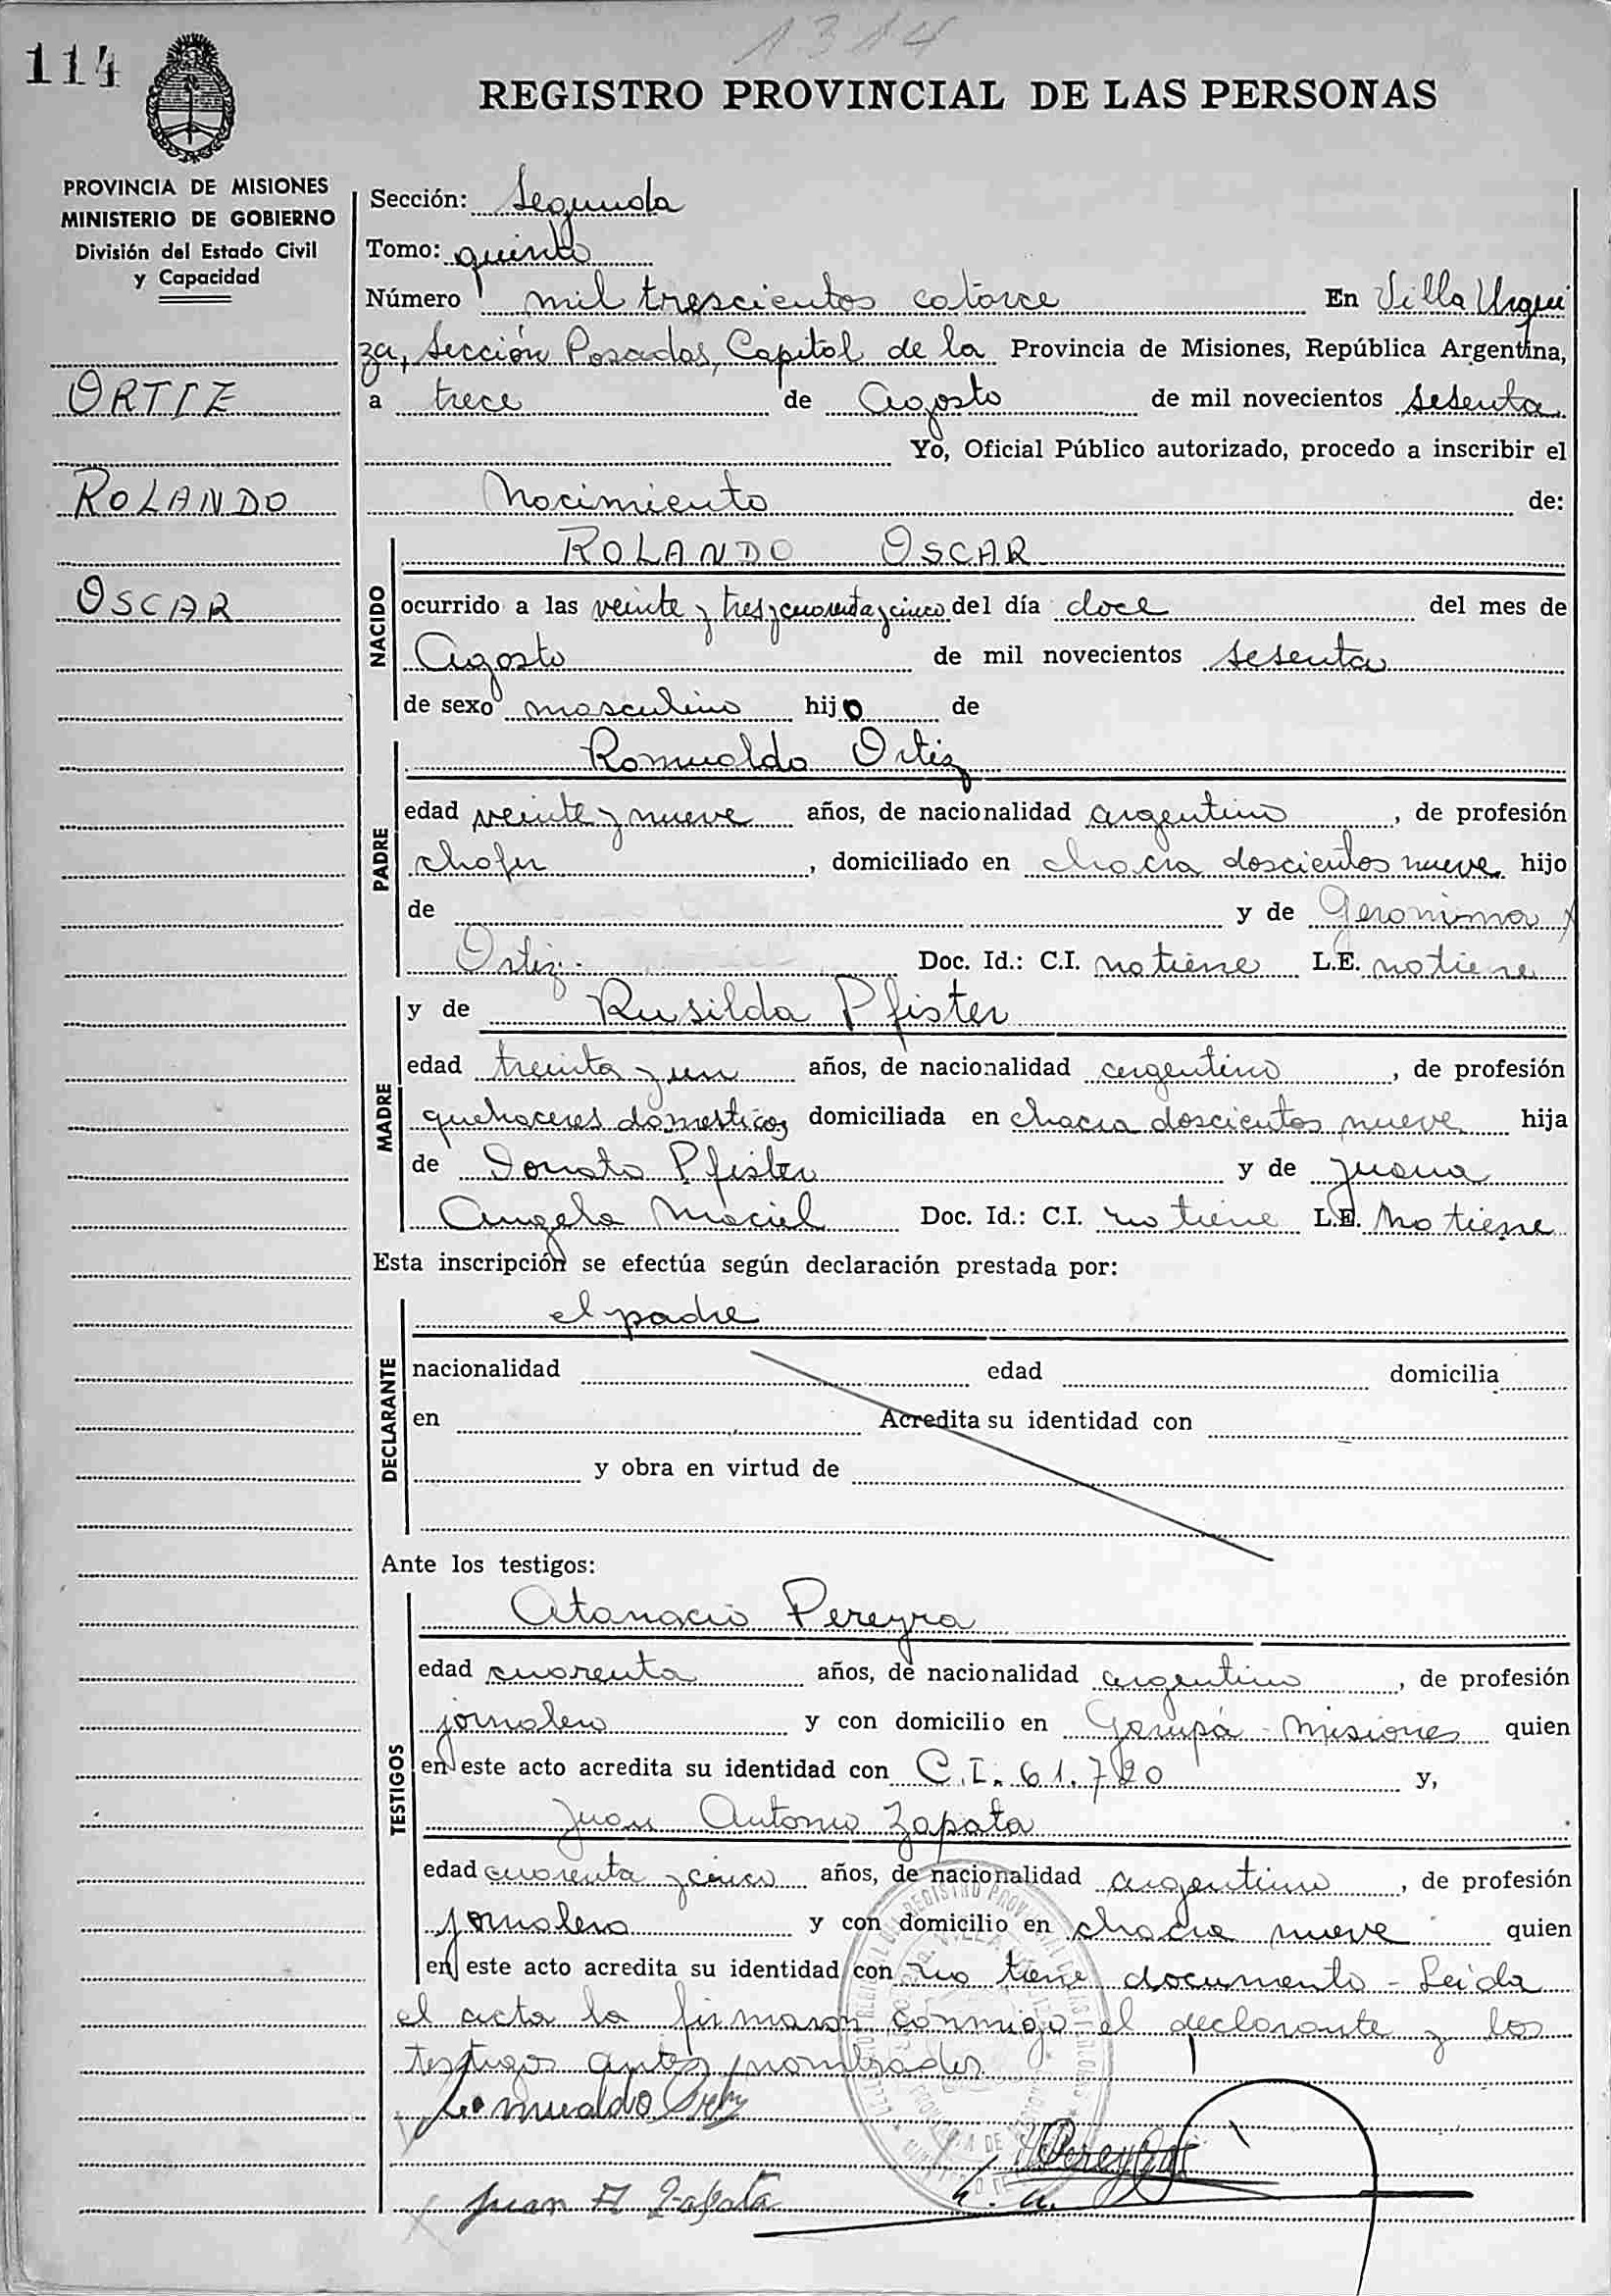 1314
114
REGISTRO PROVINCIAL DE LAS PERSONAS
PROVINCIA DE MISIONES
MINISTERIO DE GOBIERNO
División del Estado Civil
y Capacidad
ORTIZ
ROLANDO
OSCAR
Sección: Segunda
Tomo: quinto
Número mil trescientos catorce En Villa Urqui
za, Sección Posadas, Capital de la Provincia de Misiones, República Argentina,
a trece de Agosto de mil novecientos sesenta
Yo, Oficial Público autorizado, procedo a inscribir el
Nacimiento de:
NACIDO
ROLANDO OSCAR
ocurrido a las veinte y tres y cuarenta y cinco del día doce del mes de
Agosto de mil novecientos sesenta
de sexo masculino hijo de
PADRE
Romualdo Ortiz
edad veinte y nueve años, de nacionalidad argentino, de profesión
chofer, domiciliado en chacra doscientos nueve hijo
de y de Geronima
Ortiz. Doc. Id.: C.I. no tiene L.E. no tiene
MADRE
y de Rusilda Pfister
edad treinta y un años, de nacionalidad argentina, de profesión
quehaceres domesticos domiciliada en chacra doscientos nueve hija
de Donato Pfister y de Juana
Angela Maciel Doc. Id.: C.I. no tiene L.E. No tiene
Esta inscripción se efectúa según declaración prestada por:
DECLARANTE
el padre
nacionalidad edad domicilia
en Acredita su identidad con
y obra en virtud de
Ante los testigos:
TESTIGOS
Atanacio Pereyra
edad cuarenta años, de nacionalidad argentino, de profesión
jornalero y con domicilio en Garupá - Misiones quien
en este acto acredita su identidad con C.I. 61.720 y,
Juan Antonio Zapata
edad cuarenta y cinco años, de nacionalidad argentino, de profesión
jornalero y con domicilio en chacra nueve quien
en este acto acredita su identidad con no tiene documento - Leida
el acta la firmaron conmigo el declarante y los
testigos antes nombrados
Romualdo Ortiz
Pereyra
Juan A Zapata